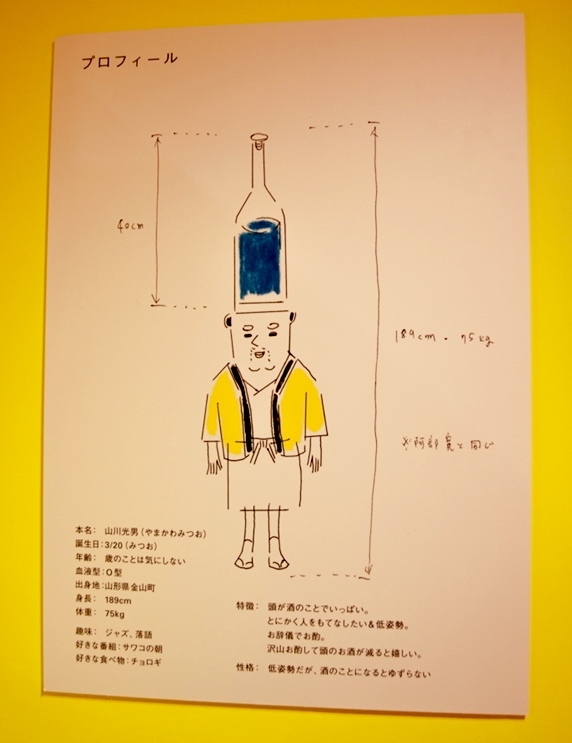 プロフィール
40cm
189cm・75kg
※阿部寛と同じ
本名： 山川光男（やまかわみつお）
誕生日：3/20（みつお）
年齢： 歳のことは気にしない
血液型：O型
出身地：山形県金山町
身長： 189cm
体重： 75kg
趣味： ジャズ、落語
好きな番組：サワコの朝
好きな食べ物：チョロギ
特徴： 頭が酒のことでいっぱい。
とにかく人をもてなしたい＆低姿勢。
お辞儀でお酌。
沢山お酌して頭のお酒が減ると嬉しい。
性格： 低姿勢だが、酒のことになるとゆずらない